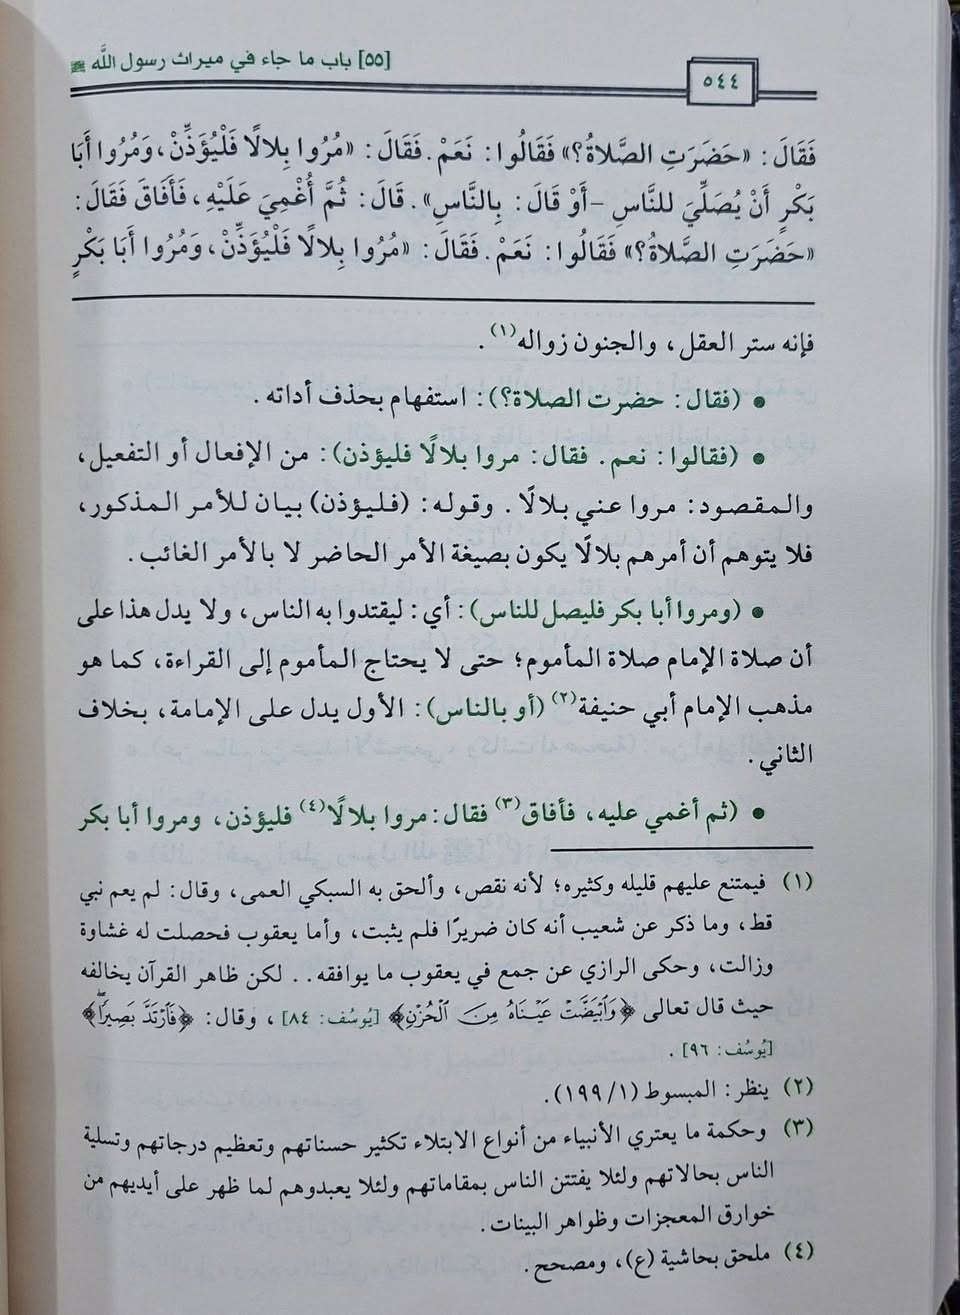 [٥٥] باب ما جاء في ميراث رسول الله ﷺ
٥٤٤
فَقَالَ: «حَضَرَتِ الصَّلاةُ؟» فَقَالُوا: نَعَمْ. فَقَالَ: «مُرُوا بِلالًا فَلْيُؤَذِّنْ، وَمُرُوا أَبَا
بَكْرٍ أَنْ يُصَلِّيَ للنَّاسِ -أَوْ قَالَ: بِالنَّاسِ». قَالَ: ثُمَّ أُغْمِيَ عَلَيْهِ، فَأَفَاقَ فَقَالَ:
«حَضَرَتِ الصَّلاةُ؟» فَقَالُوا: نَعَمْ. فَقَالَ: «مُرُوا بِلالًا فَلْيُؤَذِّنْ، وَمُرُوا أَبَا بَكْرٍ
فإنه ستر العقل، والجنون زواله(١).
• (فقال: حضرت الصلاة؟): استفهام بحذف أداته.
• (فقالوا: نعم. فقال: مروا بلالًا فليؤذن): من الإفعال أو التفعيل،
والمقصود: مروا عني بلالًا. وقوله: (فليؤذن) بيان للأمر المذكور،
فلا يتوهم أن أمرهم بلالًا يكون بصيغة الأمر الحاضر لا بالأمر الغائب.
• (ومروا أبا بكر فليصل للناس): أي: ليقتدوا به الناس، ولا يدل هذا على
أن صلاة الإمام صلاة المأموم؛ حتى لا يحتاج المأموم إلى القراءة، كما هو
مذهب الإمام أبي حنيفة(٢) (أو بالناس): الأول يدل على الإمامة، بخلاف
الثاني.
• (ثم أغمي عليه، فأفاق(٣) فقال: مروا بلالًا(٤) فليؤذن، ومروا أبا بكر
(١) فيمتنع عليهم قليله وكثيره؛ لأنه نقص، وألحق به السبكي العمى، وقال: لم يعم نبي
قط، وما ذكر عن شعيب أنه كان ضريرًا فلم يثبت، وأما يعقوب فحصلت له غشاوة
وزالت، وحكى الرازي عن جمع في يعقوب ما يوافقه.. لكن ظاهر القرآن يخالفه
حيث قال تعالى ﴿وَٱبۡيَضَّتۡ عَيۡنَاهُ مِنَ ٱلۡحُزۡنِ﴾ [يُوسُف: ٨٤]، وقال: ﴿فَٱرۡتَدَّ بَصِيرٗاۖ﴾
[يُوسُف: ٩٦].
(٢) ينظر: المبسوط (١/ ١٩٩).
(٣) وحكمة ما يعتري الأنبياء من أنواع الابتلاء تكثير حسناتهم وتعظيم درجاتهم وتسلية
الناس بحالاتهم ولئلا يفتتن الناس بمقاماتهم ولئلا يعبدوهم لما ظهر على أيديهم من
خوارق المعجزات وظواهر البينات.
(٤) ملحق بحاشية (ع)، ومصحح.